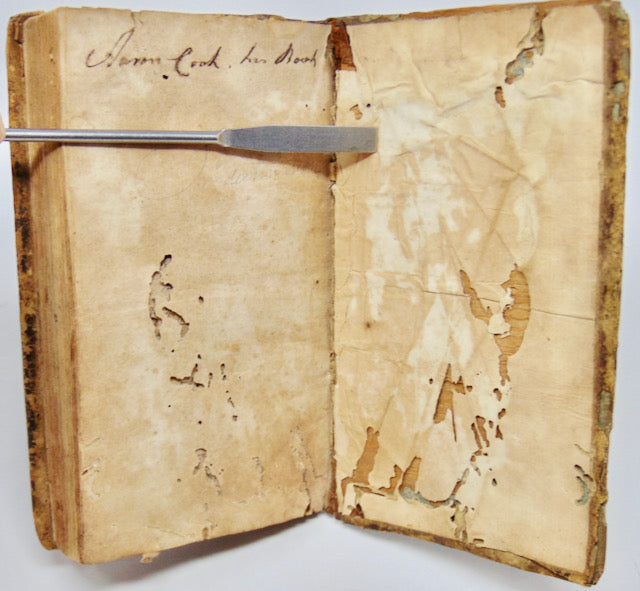 Aaron Cook, his Book